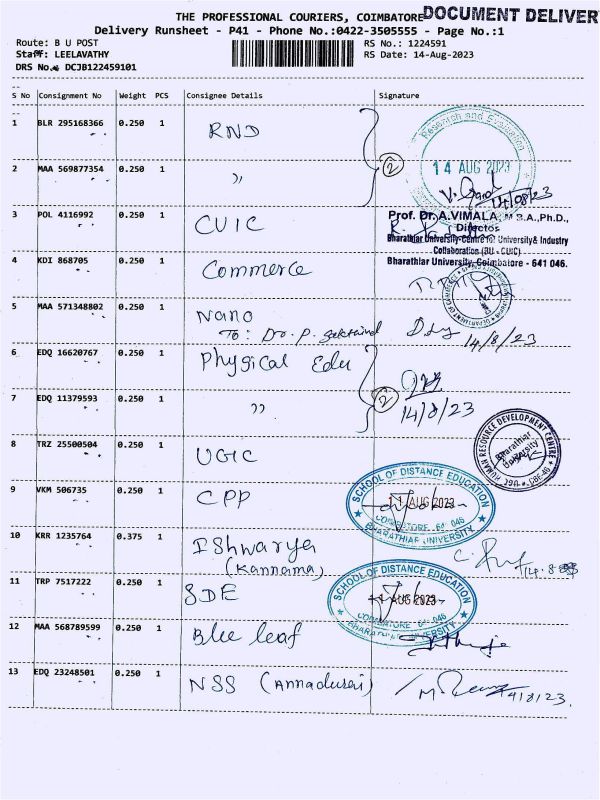 THE PROFESSIONAL COURIERS, COIMBATORE DOCUMENT DELIVER
Delivery Runsheet - P41 - Phone No.:0422-3505555 - Page No.:1
Route: B U POST
Staff: LEELAVATHY
DRS No. DCJB122459101
RS No.: 1224591
RS Date: 14-Aug-2023
S No Consignment No Weight PCS Consignee Details Signature
1 BLR 295168366 0.250 1 RND
Research and Evaluation
14 AUG 2023
2 MAA 569877354 0.250 1 ,,
2
14/08/23
3 POL 4116992 0.250 1 CUIC
Prof. Dr.A.VIMALA, M.B.A.,Ph.D.,
Director
Bharathiar University-Centre for University& Industry
Collaboration (BU - CUIC)
Bharathiar University, Coimbatore - 641 046.
4 KDI 868705 0.250 1 Commerce
5 MAA 571348802 0.250 1 Nano
To: Dr. P.
14/8/23
6 EDQ 16620767 0.250 1 Physical Edu
7 EDQ 11379593 0.250 1 ,,
2
14/8/23
8 TRZ 25500504 0.250 1 UGIC
HUMAN RESOURCE DEVELOPMENT CENTRE
Bharathiar
University
UGC CBE-46
9 VKM 506735 0.250 1 CPP
SCHOOL OF DISTANCE EDUCATION
AUG 2023
COIMBATORE 641 046
BHARATHIAR UNIVERSITY
10 KRR 1235764 0.375 1 Ishwarya
(Kannama)
14.8
11 TRP 7517222 0.250 1 SDE
SCHOOL OF DISTANCE EDUCATION
AUG 2023
COIMBATORE 641 046
BHARATHIAR UNIVERSITY
12 MAA 568789599 0.250 1 Blue leaf
13 EDQ 23248501 0.250 1 NSS (Annadurai)
14/8/23.